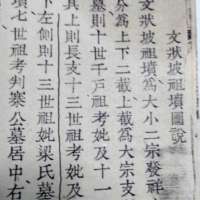 文狀坡祖墳圖說
文狀坡祖墳為大小二宗發祥
分為上下二截上截為大宗支
墓則十世千戶祖考妣及十一
其上則長支十三世祖考妣及
下左側則十三世祖妣梁氏墓
墳七世祖考判寨公墓居中右